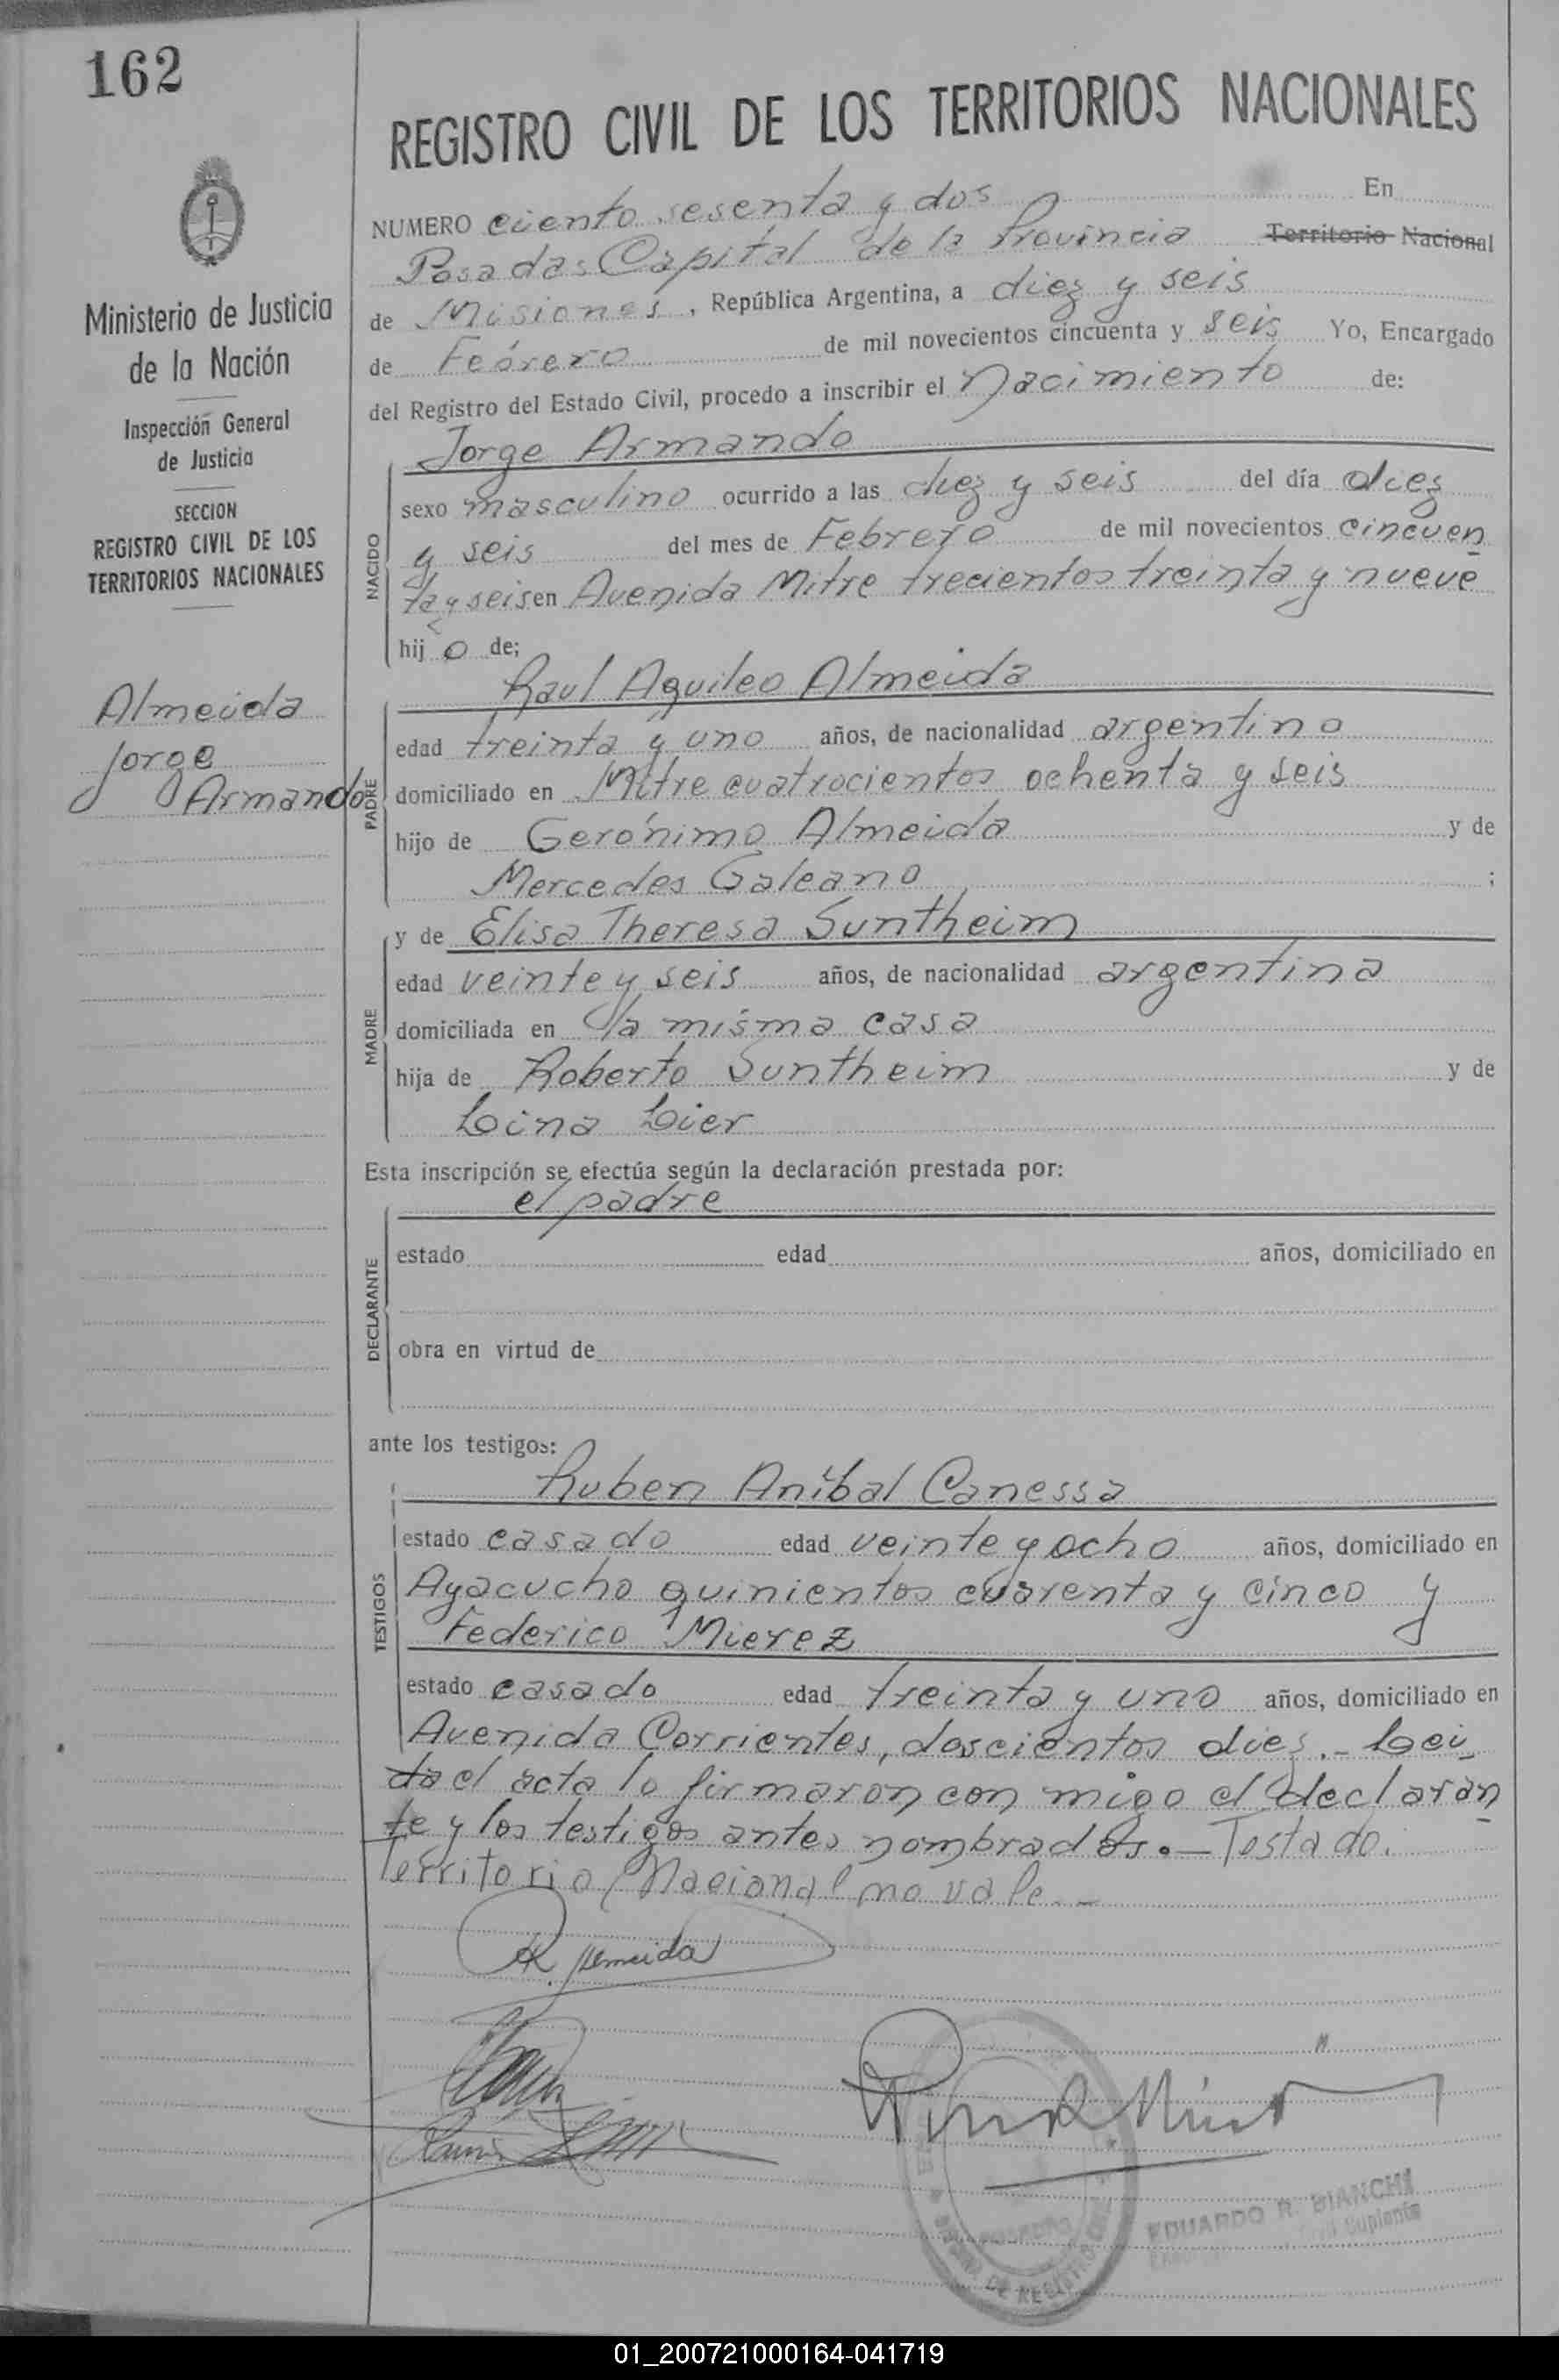 162
REGISTRO CIVIL DE LOS TERRITORIOS NACIONALES
NUMERO ciento sesenta y dos En
Posadas Capital de la Provincia Territorio Nacional
de Misiones, República Argentina, a diez y seis
de Febrero de mil novecientos cincuenta y seis Yo, Encargado
del Registro del Estado Civil, procedo a inscribir el Nacimiento de:
Jorge Armando
NACIDO
sexo masculino ocurrido a las diez y seis del día diez
y seis del mes de Febrero de mil novecientos cincuen
ta y seis en Avenida Mitre trecientos treinta y nueve
hijo de;
Raul Aquileo Almeida
PADRE
edad treinta y uno años, de nacionalidad argentino
domiciliado en Mitre cuatrocientos ochenta y seis
hijo de Gerónimo Almeida y de
Mercedes Galeano ;
MADRE
y de Elisa Theresa Suntheim
edad veinte y seis años, de nacionalidad argentina
domiciliada en la misma casa
hija de Roberto Suntheim y de
Lina Lier
Esta inscripción se efectúa según la declaración prestada por:
el padre
DECLARANTE
estado edad años, domiciliado en
obra en virtud de
ante los testigos:
Ruben Anibal Canessa
TESTIGOS
estado casado edad veinte y ocho años, domiciliado en
Ayacucho quinientos cuarenta y cinco y
Federico Mierez
estado casado edad treinta y uno años, domiciliado en
Avenida Corrientes, doscientos dies.- Lei
da el acta lo firmaron con migo el declaran
te y los testigos antes nombrados.- Testado:
Territorio Nacional no vale.-
R. Almeida
EDUARDO R. BIANCHI
Suplente
Ministerio de Justicia
de la Nación
Inspección General
de Justicia
SECCION
REGISTRO CIVIL DE LOS
TERRITORIOS NACIONALES
Almeida
Jorge
Armando
01_200721000164-041719